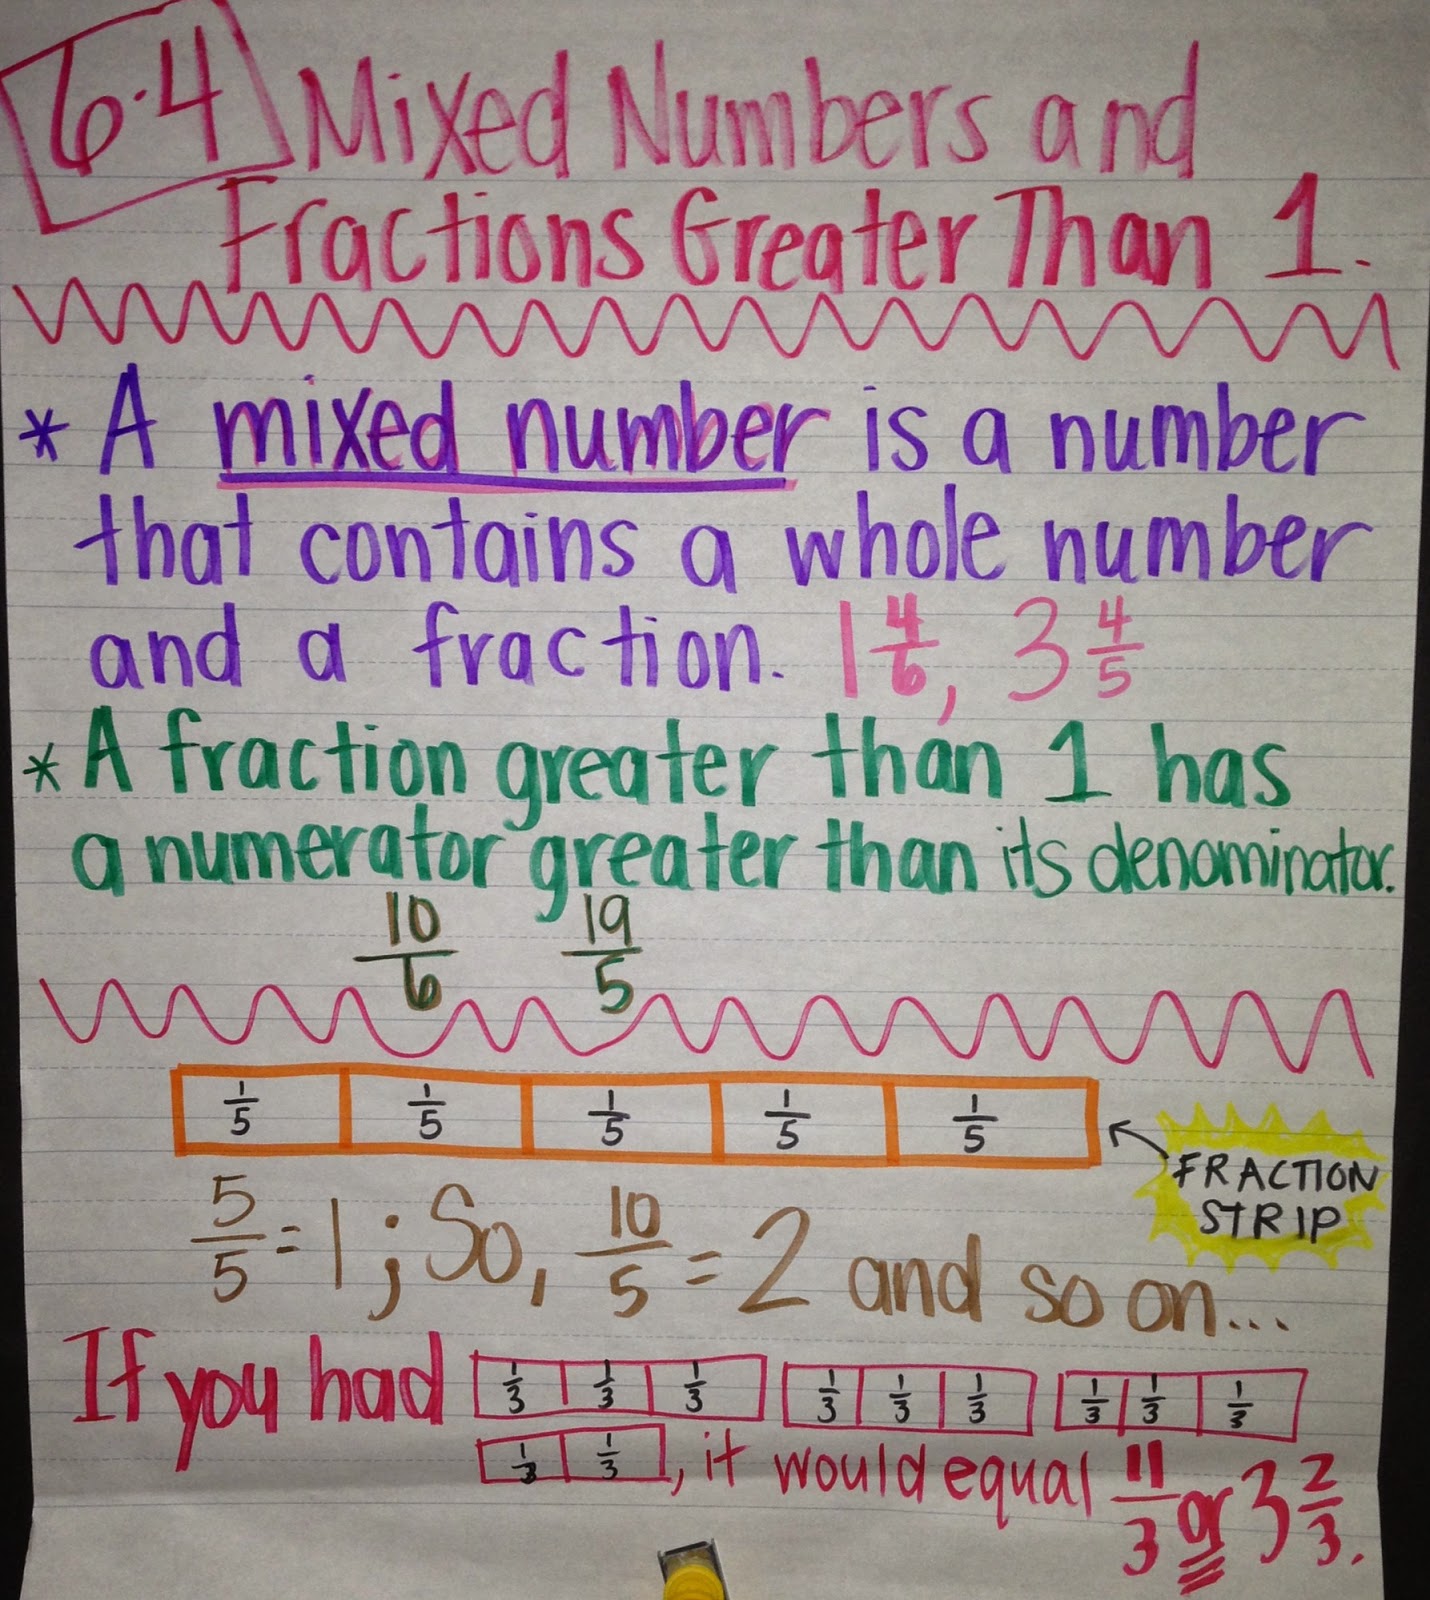 6.4 Mixed Numbers and
Fractions Greater Than 1.
* A mixed number is a number
that contains a whole number
and a fraction. 1 4/6, 3 4/5
* A fraction greater than 1 has
a numerator greater than its denominator.
10/6 19/5
1/5 1/5 1/5 1/5 1/5
FRACTION
STRIP
5/5 = 1; So, 10/5 = 2 and so on...
If you had 1/3 1/3 1/3 1/3 1/3 1/3 1/3 1/3 1/3
1/3 1/3, it would equal 11/3 or 3 2/3.